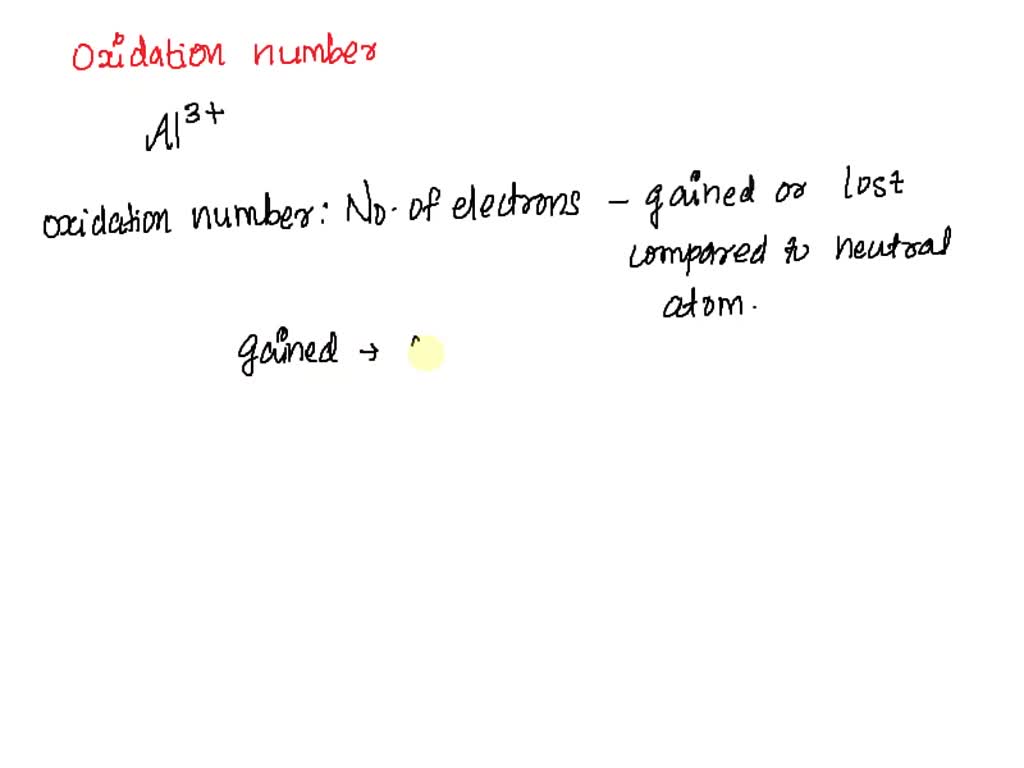 Oxidation number
Al³⁺
oxidation number: No. of electrons – gained or lost
compared to neutral
atom.
gained →